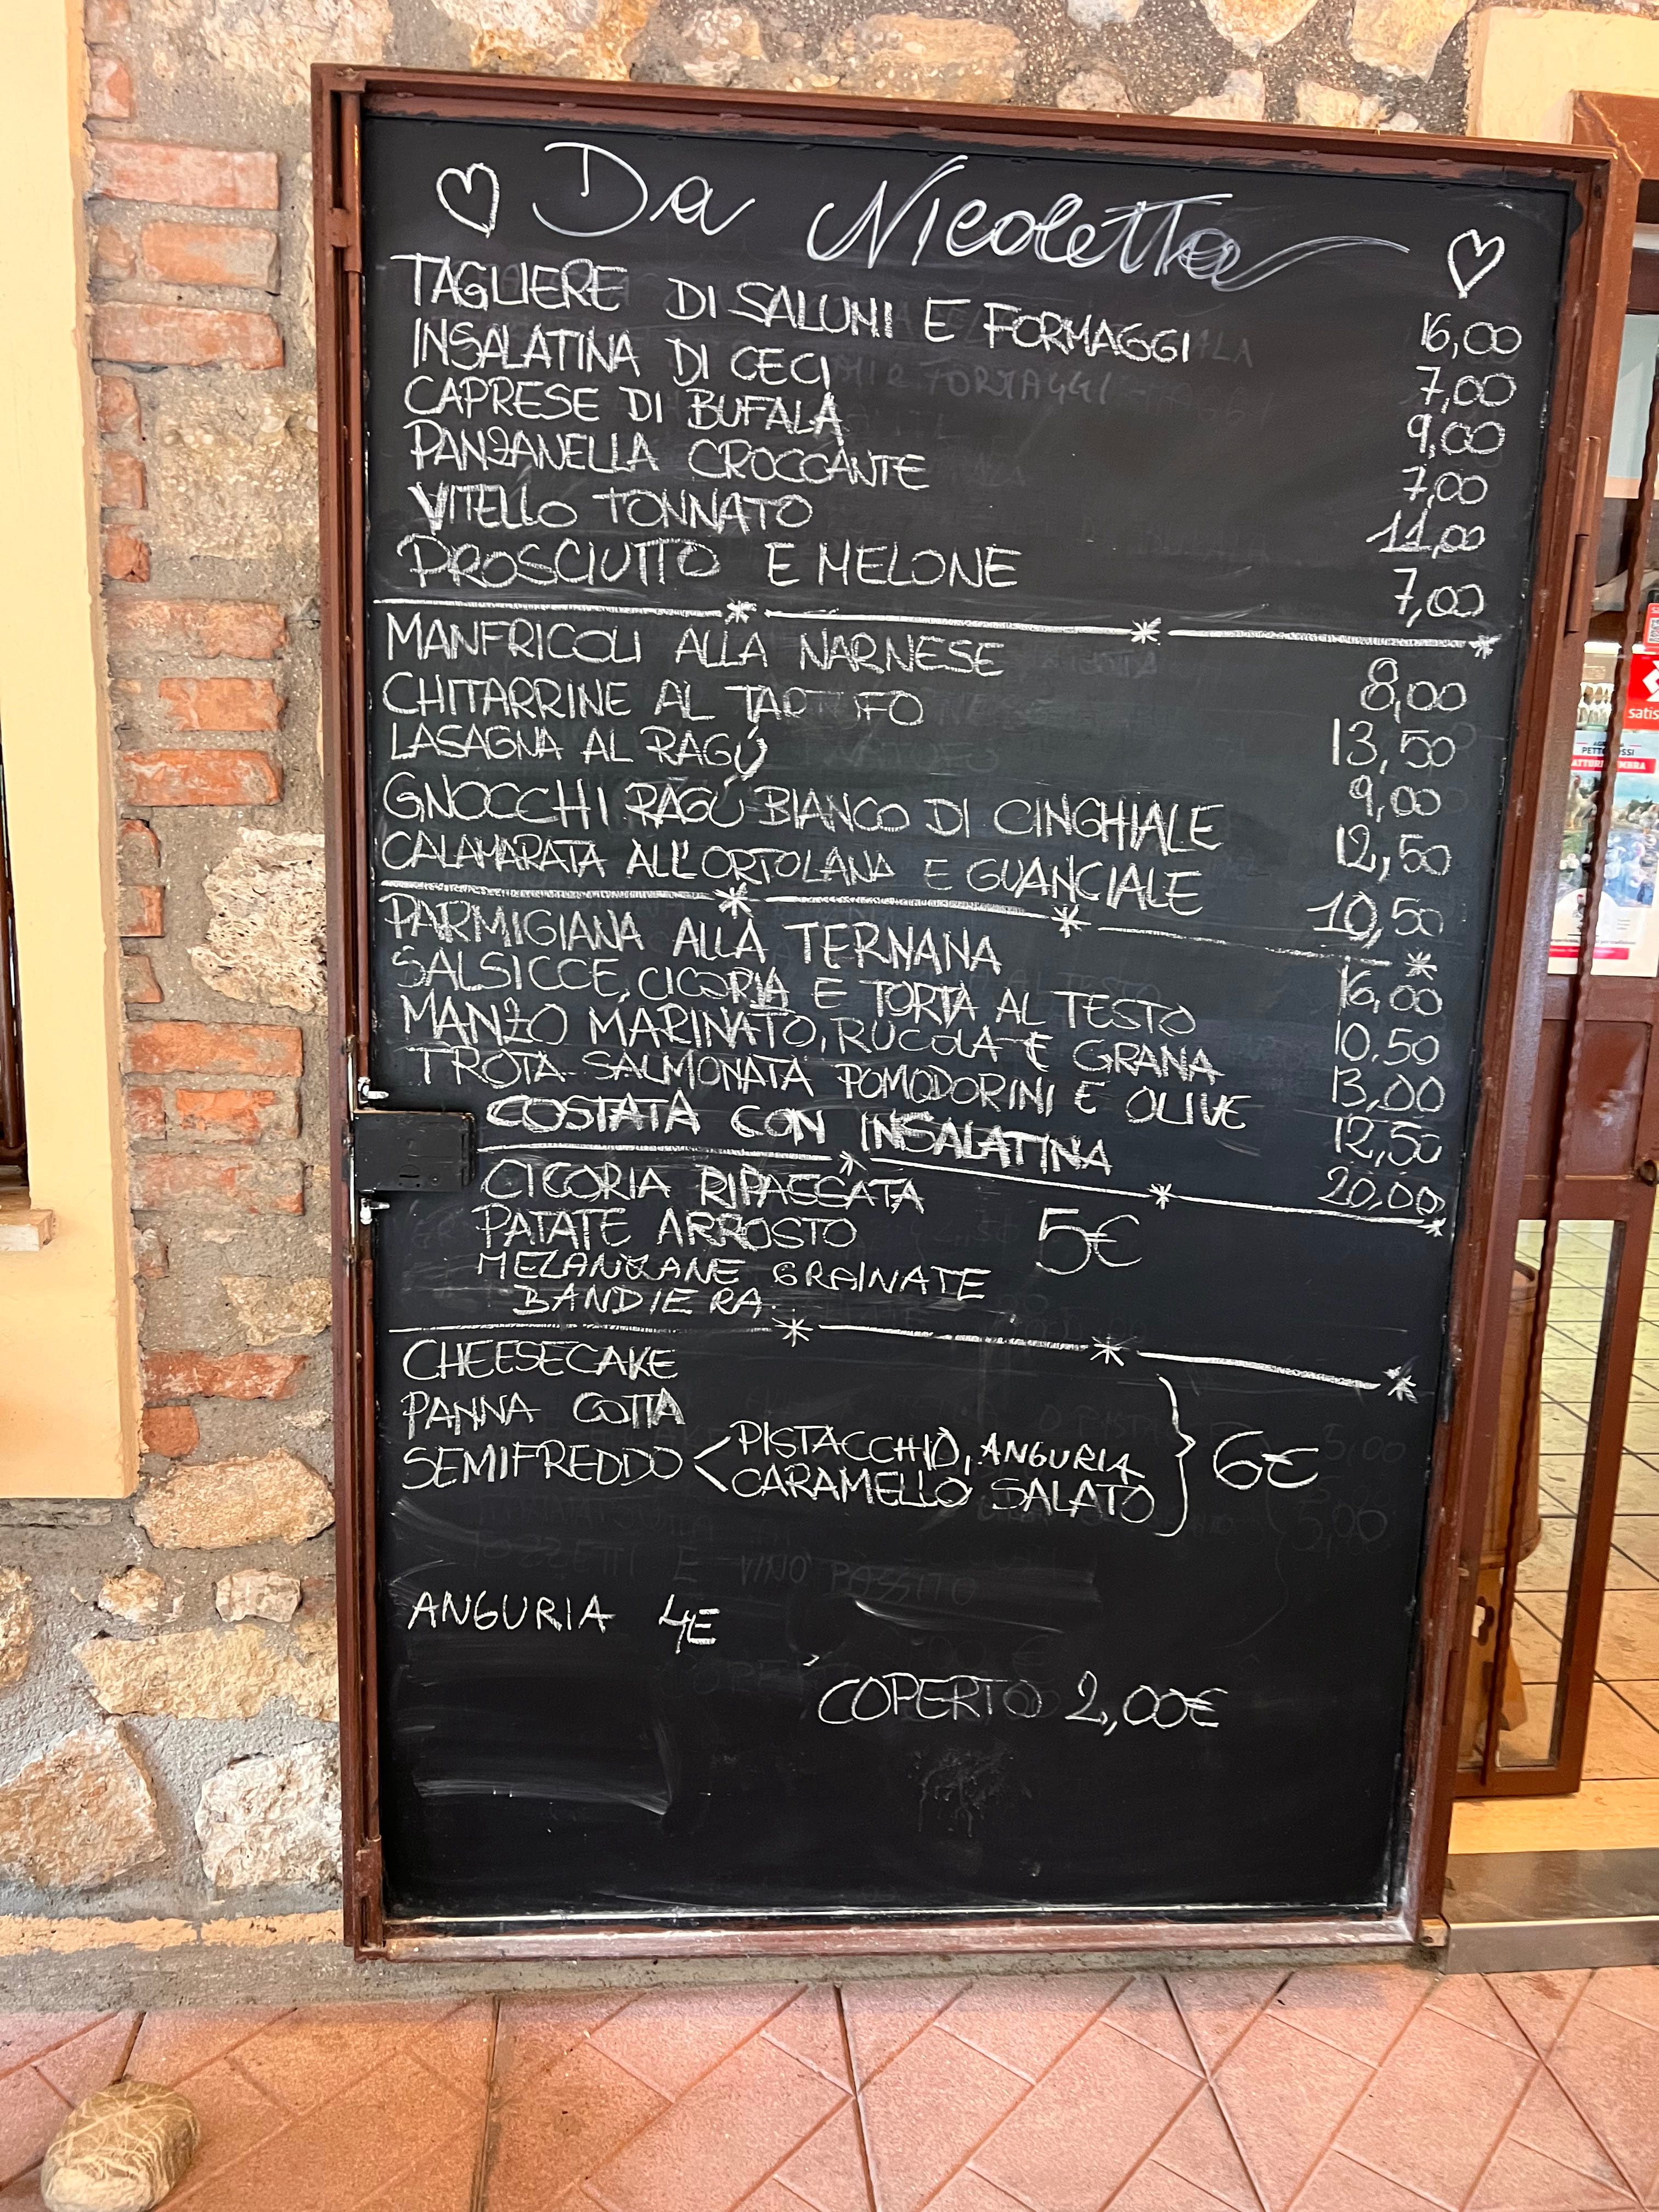 Da Nicoletta
TAGLIERE DI SALUMI E FORMAGGI 16,00
INSALATINA DI CECI 7,00
CAPRESE DI BUFALA 9,00
PANZANELLA CROCCANTE 7,00
VITELLO TONNATO 11,00
PROSCIUTTO E MELONE 7,00
MANFRICOLI ALLA NARNESE 8,00
CHITARRINE AL TARTUFO 13,50
LASAGNA AL RAGÚ 9,00
GNOCCHI RAGÚ BIANCO DI CINGHIALE 12,50
CALAMARATA ALL'ORTOLANA E GUANCIALE 10,50
PARMIGIANA ALLA TERNANA 16,00
SALSICCE, CICORIA E TORTA AL TESTO 10.50
MANZO MARINATO, RUCOLA E GRANA 13,00
TROTA SALMONATA POMODORINI E OLIVE 12,50
COSTATA CON INSALATINA 20,00
CICORIA RIPASSATA
PATATE ARROSTO 5€
MEZANZANE GRAINATE
BANDIERA
CHEESECAKE
PANNA COTTA
SEMIFREDDO < PISTACCHIO, ANGURIA } 6€
CARAMELLO SALATO
ANGURIA 4E
COPERTO 2,00€
satis